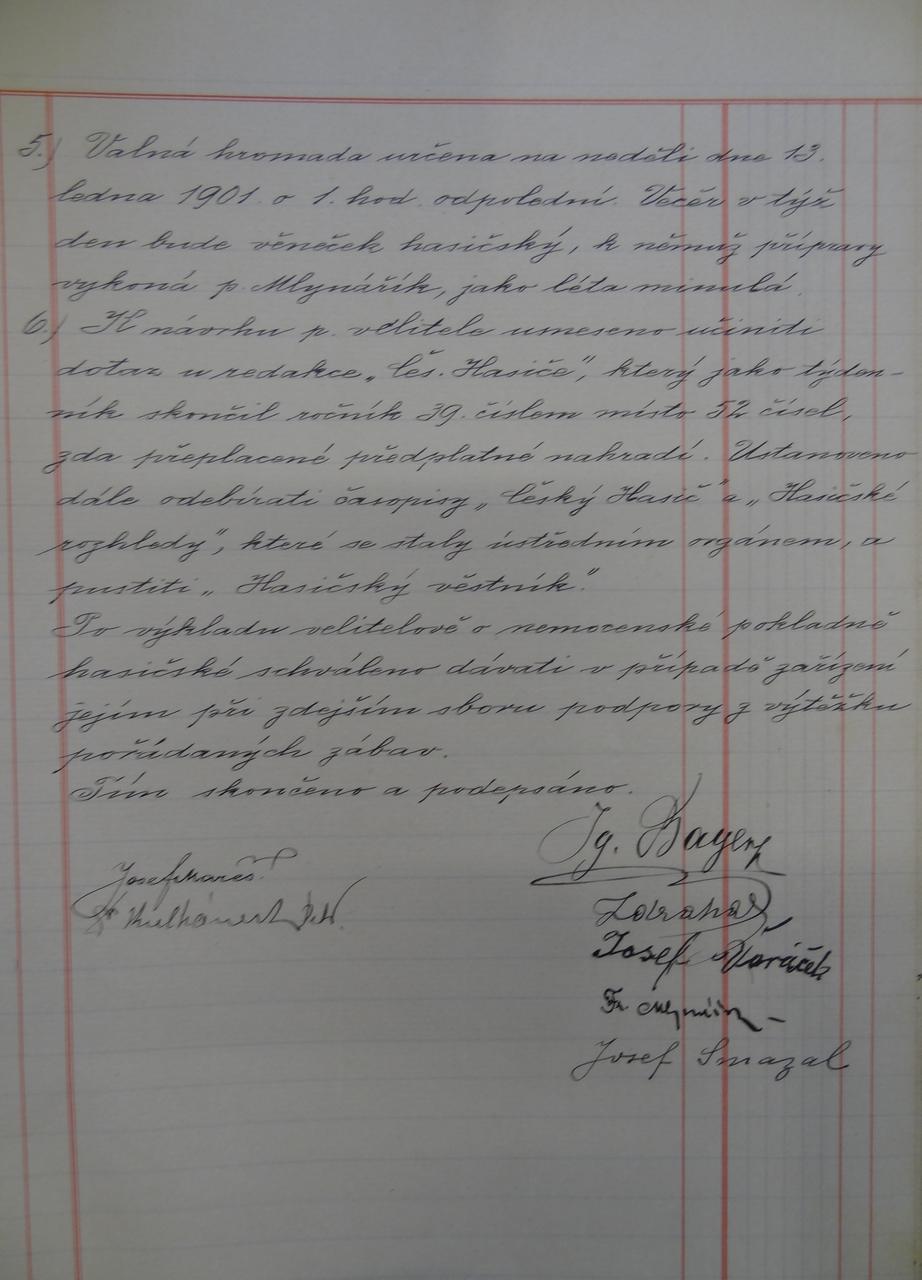 5.) Valná hromada určena na neděli dne 13.
ledna 1901. o 1. hod. odpolední. Večer v týž
den bude věneček hasičský, k němuž přípravy
vykoná p. Mlynářík, jako léta minulá.
6.) K návrhu p. velitele usneseno učiniti
dotaz u redakce „Čes. Hasiče", který jako týden-
ník skončil ročník 39. číslem místo 52 čísel,
zda přeplacené předplatné nahradí. Ustanoveno
dále odebírati časopisy „Český Hasič" a „Hasičské
rozhledy", které se staly ústředním orgánem, a
pustiti „Hasičský věstník."
Po výkladu velitelově o nemocenské pokladně
hasičské schváleno dávati v případě zařízení
jejím při zdejším sboru podpory z výtěžku
pořádaných zábav.
Tím skončeno a podepsáno.
Ig. Bayer
Josef Mareš.
Zdrahal
Josef Voráček
Fr.
Josef Smazal